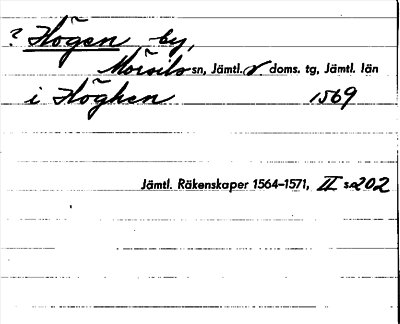 ? Högen by,
Mörsils sn, Jämtl. v doms. tg, Jämtl. län
i Höghen 1569
Jämtl. Räkenskaper 1564–1571, II s. 202